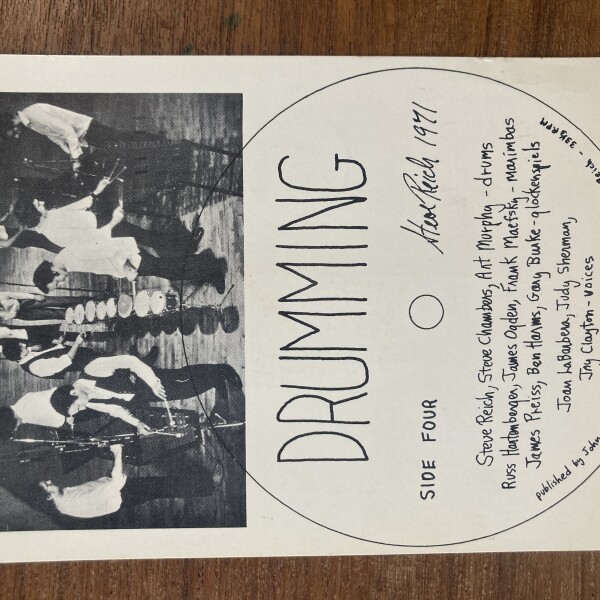 DRUMMING
SIDE FOUR
Steve Reich 1971
Steve Reich, Steve Chambers, Art Murphy - drums
Russ Hartenberger, James Ogden, Frank Maefsky - marimbas
James Preiss, Ben Harms, Gary Burke - glockenspiels
Joan LaBarbera, Judy Sherman,
Jay Clayton - voices
published by John
Reich - 33⅓ RPM